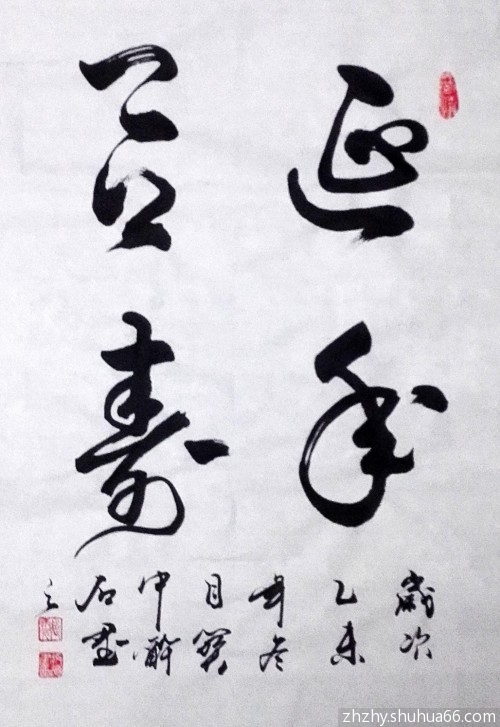 延年
益壽
歲次
乙未
年冬
月
中醉
石
之
zhzhy.shuhua66.com